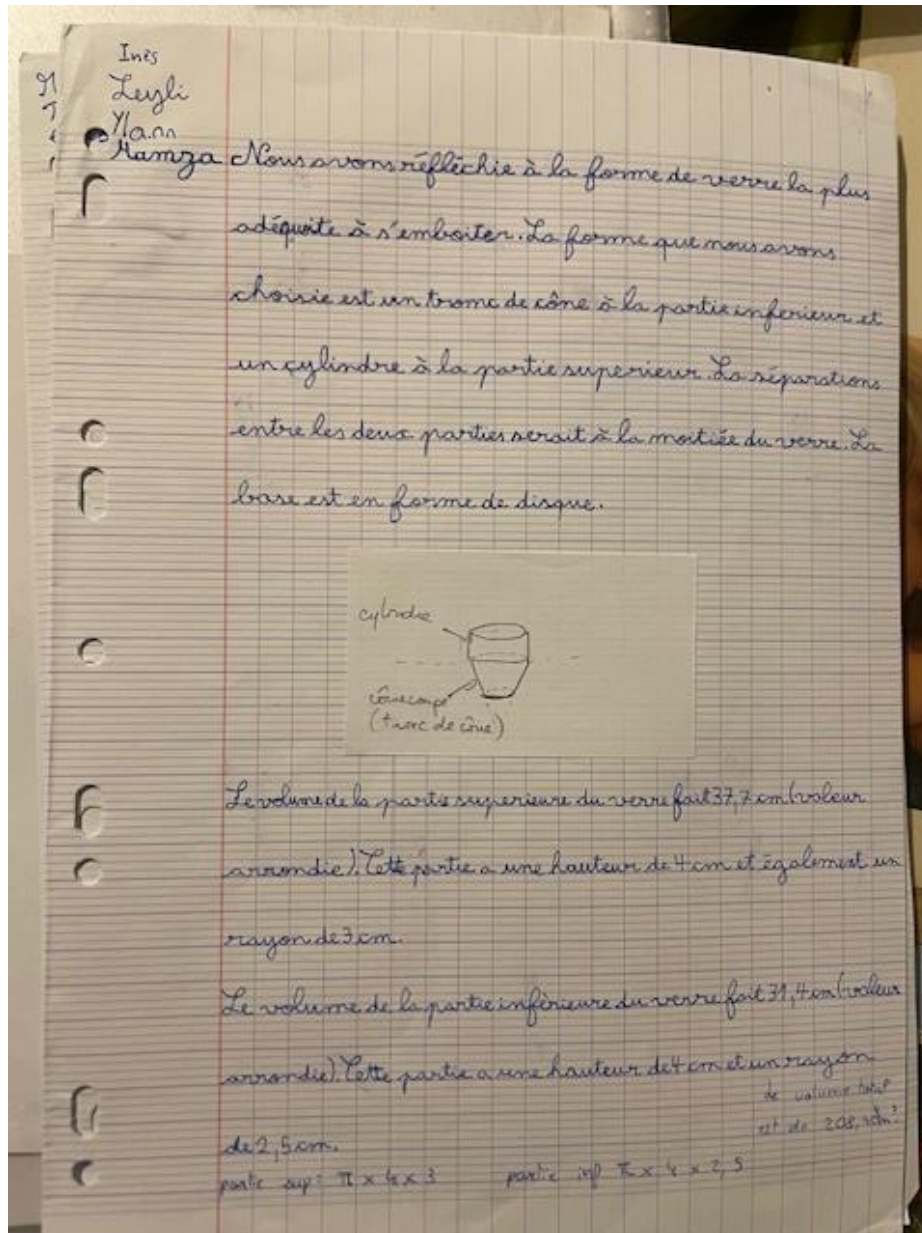 Inès
Leyli
Yann
Hamza Nous avons réfléchie à la forme de verre la plus
adéquoite à s'emboiter. La forme que nous avons
choisie est un tronc de cône à la partie inferieur et
un cylindre à la partie superieur. La séparations
entre les deux parties serait à la moitiée du verre. La
base est en forme de disque.
cylindre
cône coupé
(tronc de cône)
Le volume de la partie superieure du verre fait 37,7 cm (valeur
arrondie). Cette partie a une hauteur de 4 cm et également un
rayon de 3 cm.
Le volume de la partie infèrieure du verre fait 31,4 cm (valeur
arrondie). Cette partie a une hauteur de 4 cm et un rayon
de 2,5 cm.
le volume total
est de
partie sup : π x 4 x 3 partie inf π x 4 x 2,5